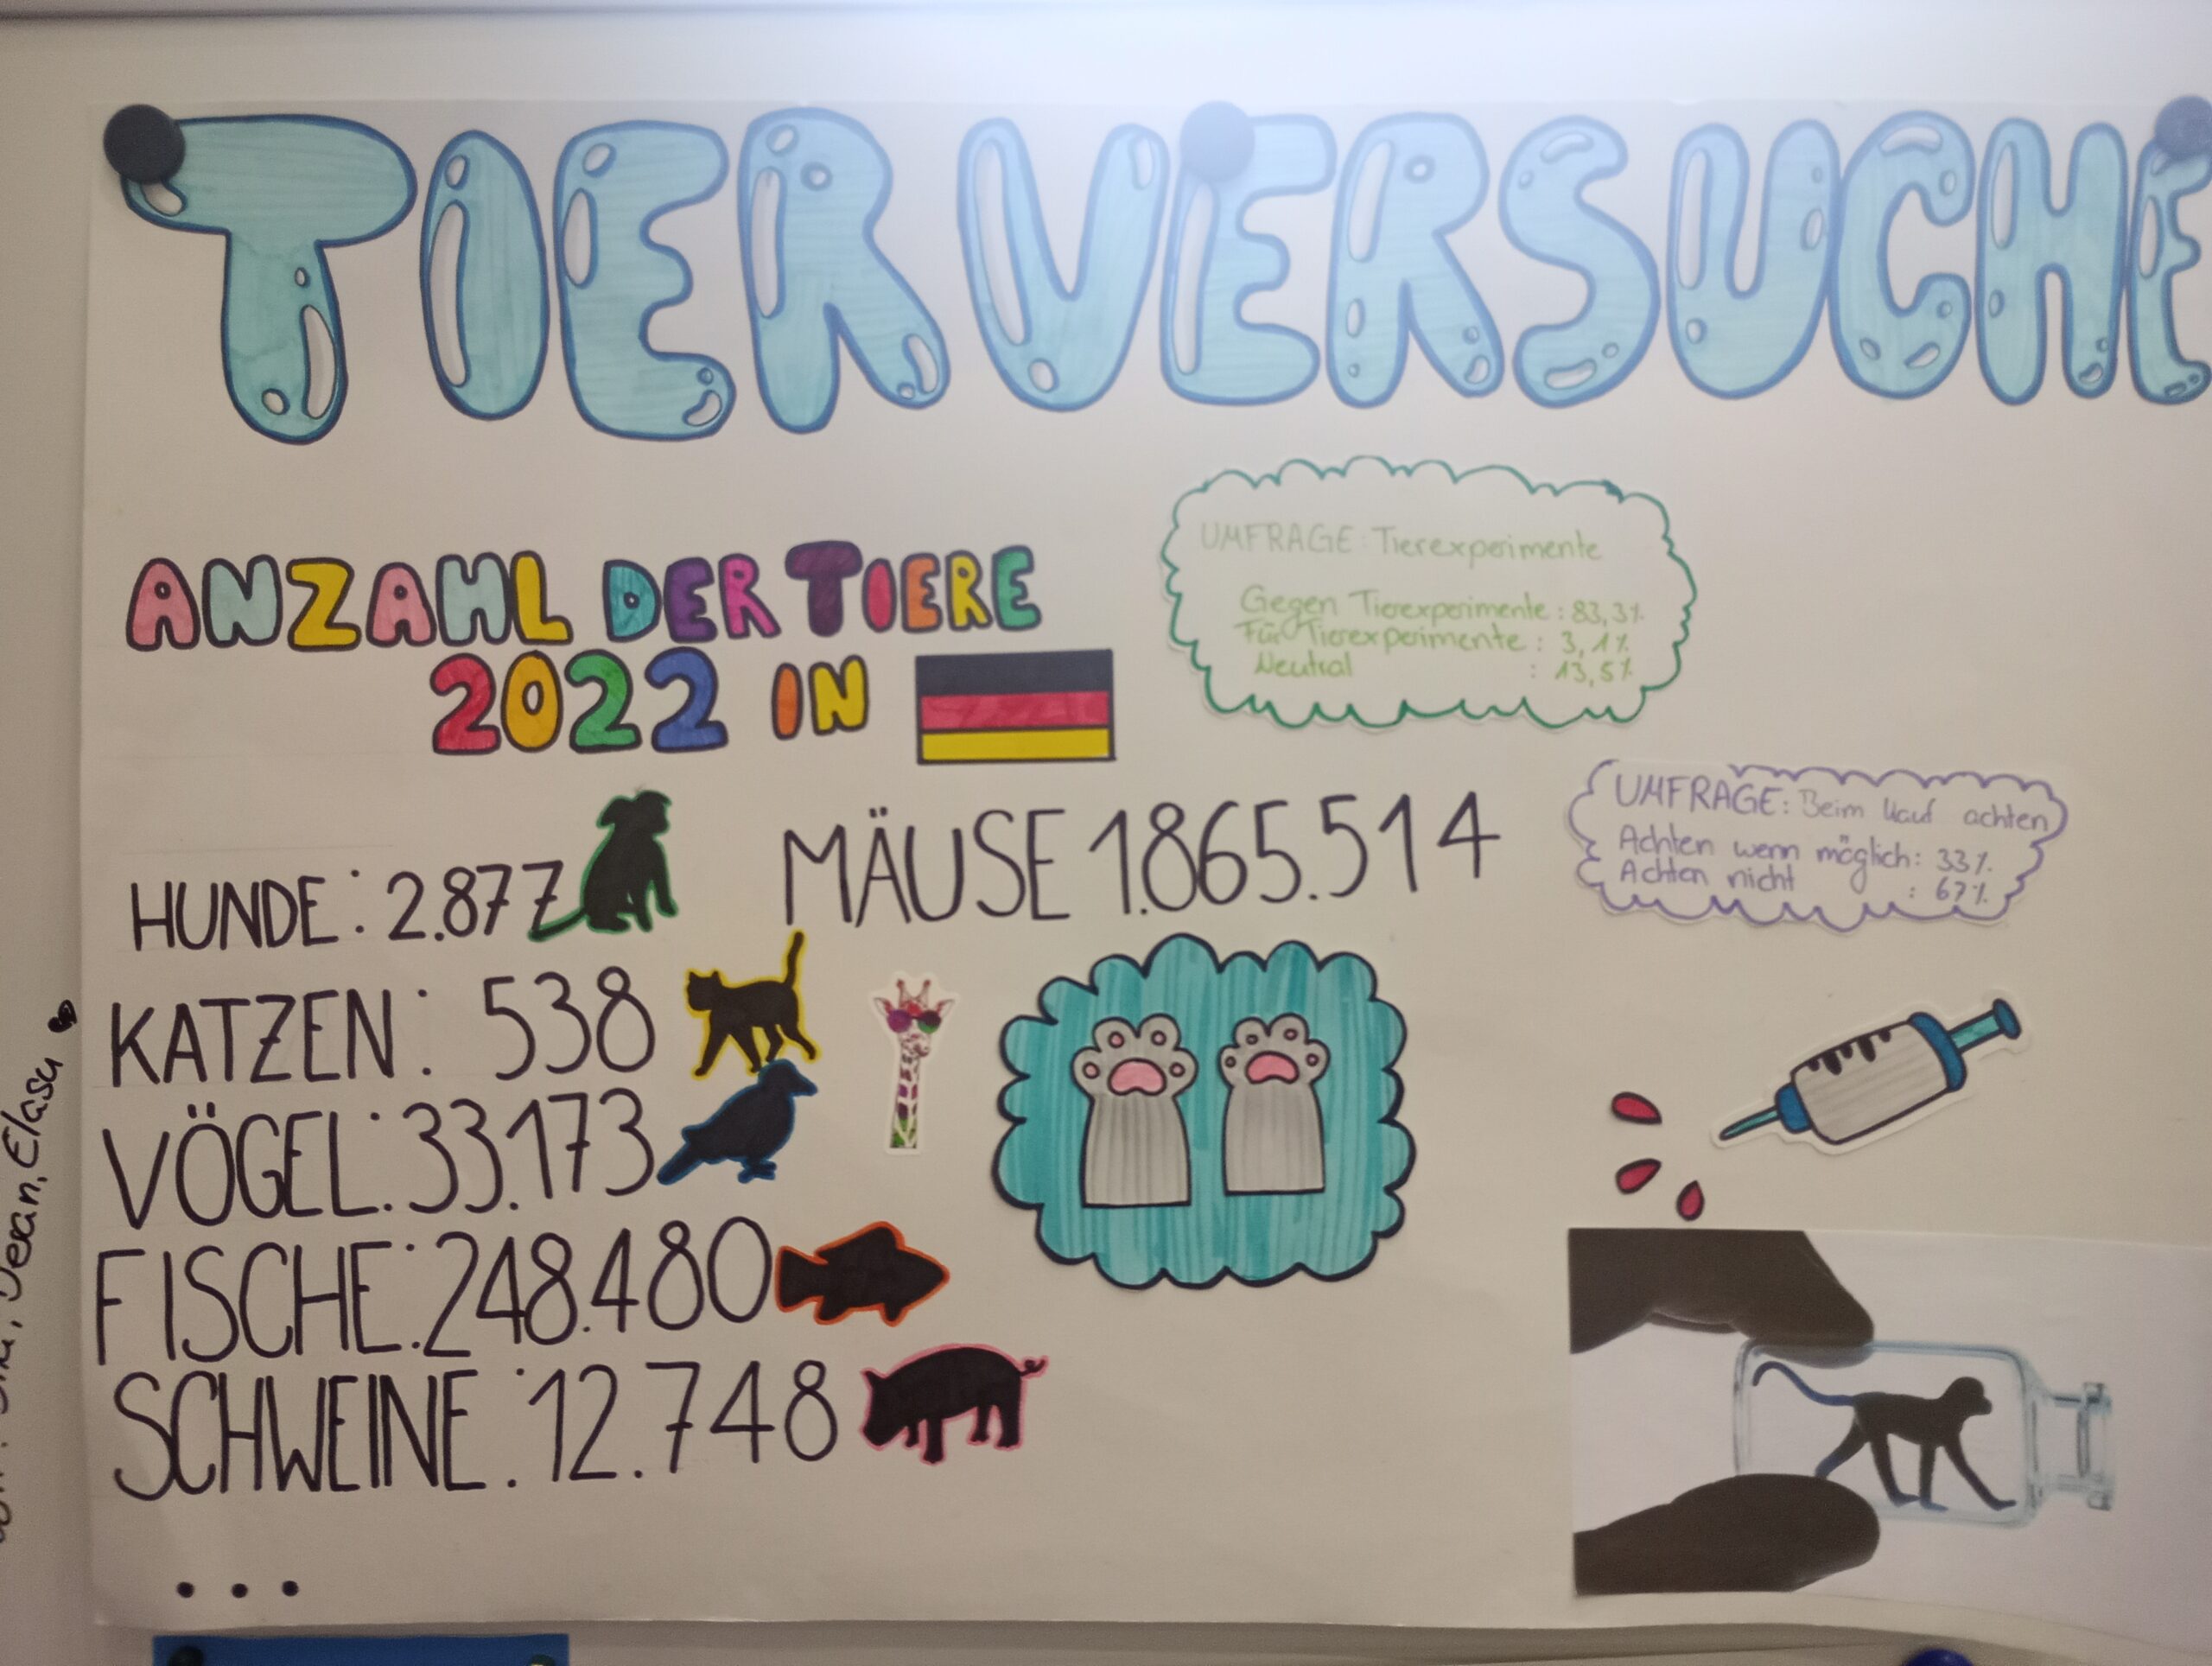 TIERVERSUCHE
ANZAHL DER TIERE
2022 IN
UMFRAGE: Tierexperimente
Gegen Tierexperimente: 83,3%
Für Tierexperimente: 3,1%
Neutral : 13,5%
HUNDE: 2.877
MÄUSE 1.865.514
UMFRAGE: Beim Kauf achten
Achten wenn möglich: 33%
Achten nicht : 67%
KATZEN: 538
VÖGEL: 33.173
FISCHE: 248.480
SCHWEINE: 12.748
...